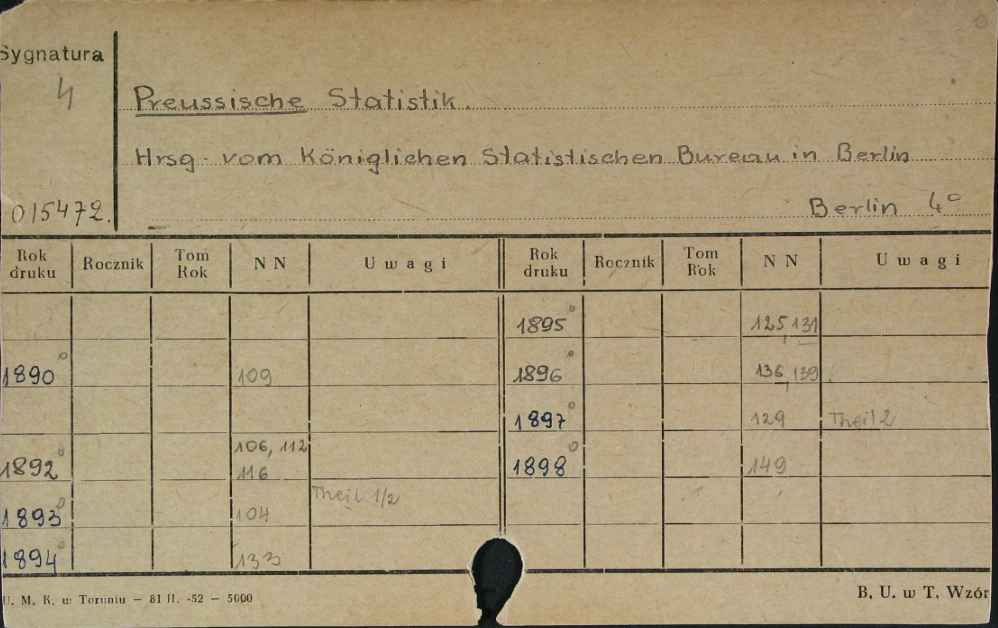 Sygnatura
4
Preussische Statistik.
Hrsg. vom Königlichen Statistischen Bureau in Berlin
015472.
Berlin 4°
Rok druku Rocznik Tom Rok NN Uwagi Rok druku Rocznik Tom Rok NN Uwagi
1895° 125, 131
1890° 109 1896° 136, 139.
1897° 129 Theil 2
106, 112
1892° 116 1898° 149
Theil 1/2
1893° 104
1894° 133
U. M. K. w Toruniu — 81 II. -52 — 5000
B. U. w T. Wzór